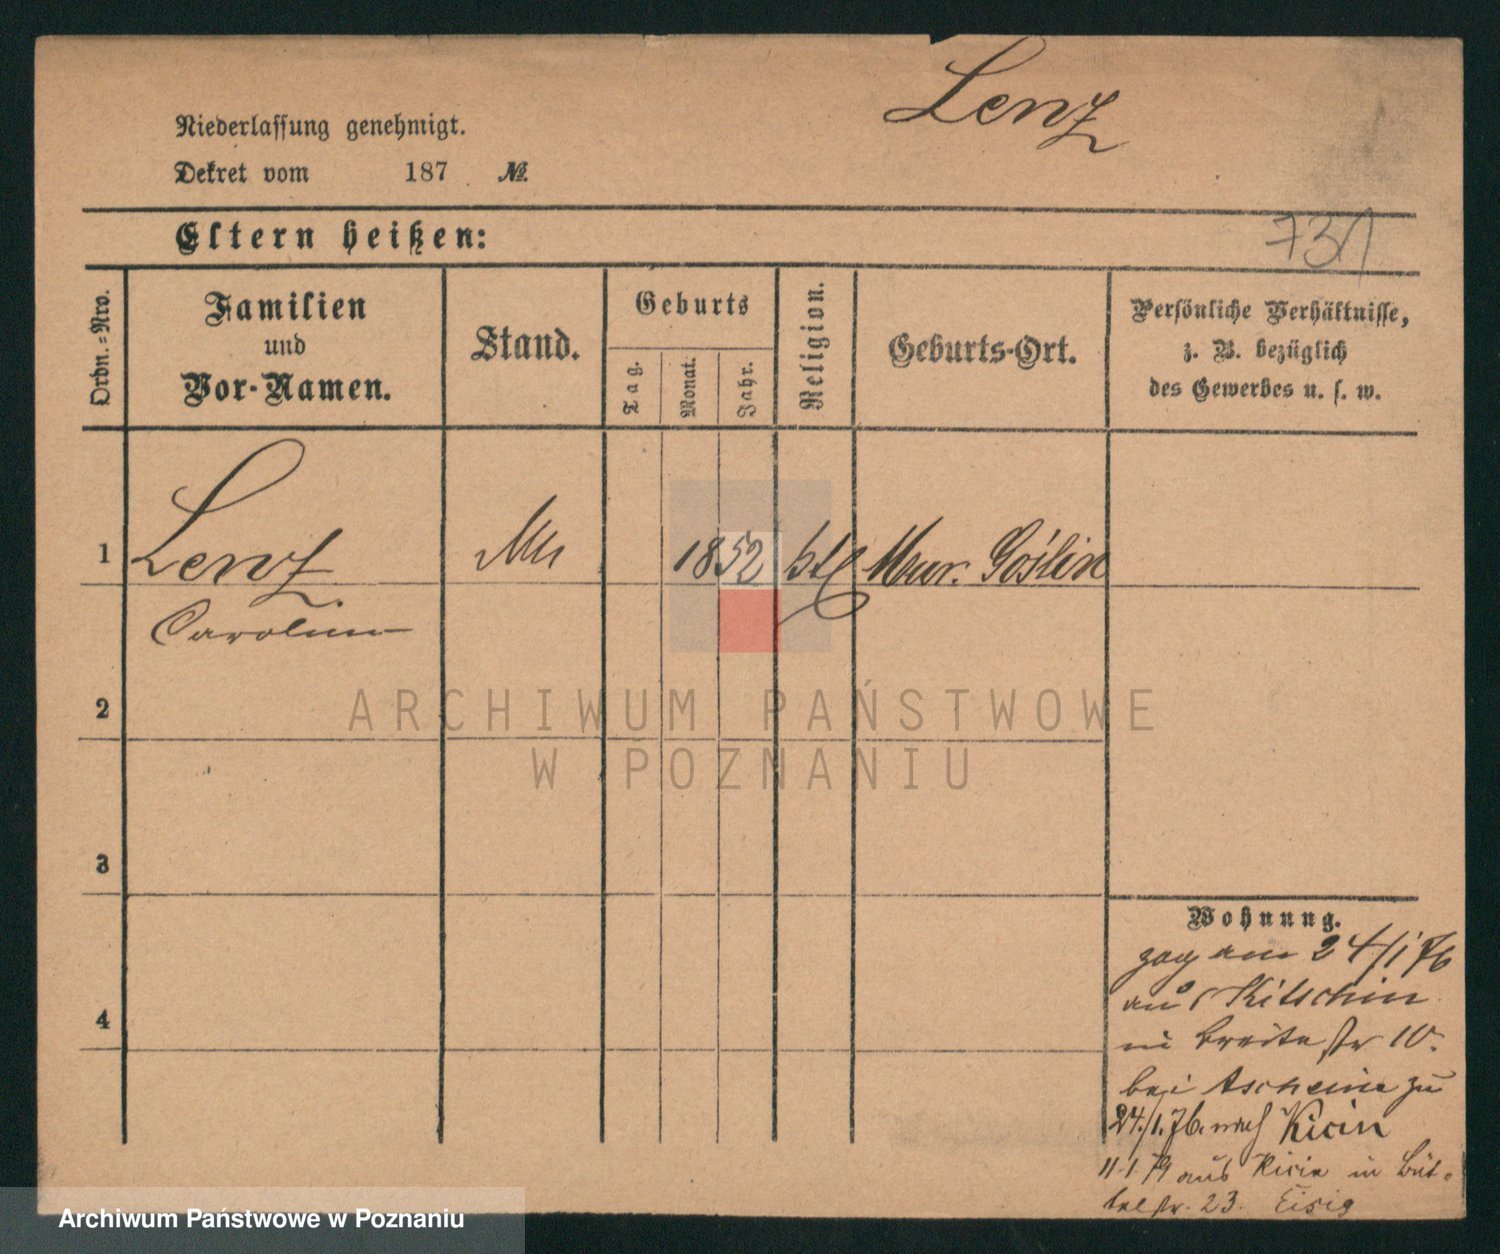 Lenz
Niederlassung genehmigt.
Dekret vom 187 . №.
731
Eltern heißen:
Ordn.-Nro.
Familien
und
Vor-Namen.
Stand.
Geburts
Tag.
Monat.
Jahr.
Religion.
Geburts-Ort.
Persönliche Verhältnisse,
z. B. bezüglich
des Gewerbes u. s. w.
1 Lenz 1852 ktl Mur. Goślin
Carolina
2
3
4
ARCHIWUM PAŃSTWOWE
W POZNANIU
Wohnung.
zog am 24/1 76
aus Kitschin
in Breitestr 10.
bei Ascheim zu
24./1.76. nach Kicin
11.1 79 aus Kicin in Büt-
telstr. 23. Eisig
Archiwum Państwowe w Poznaniu